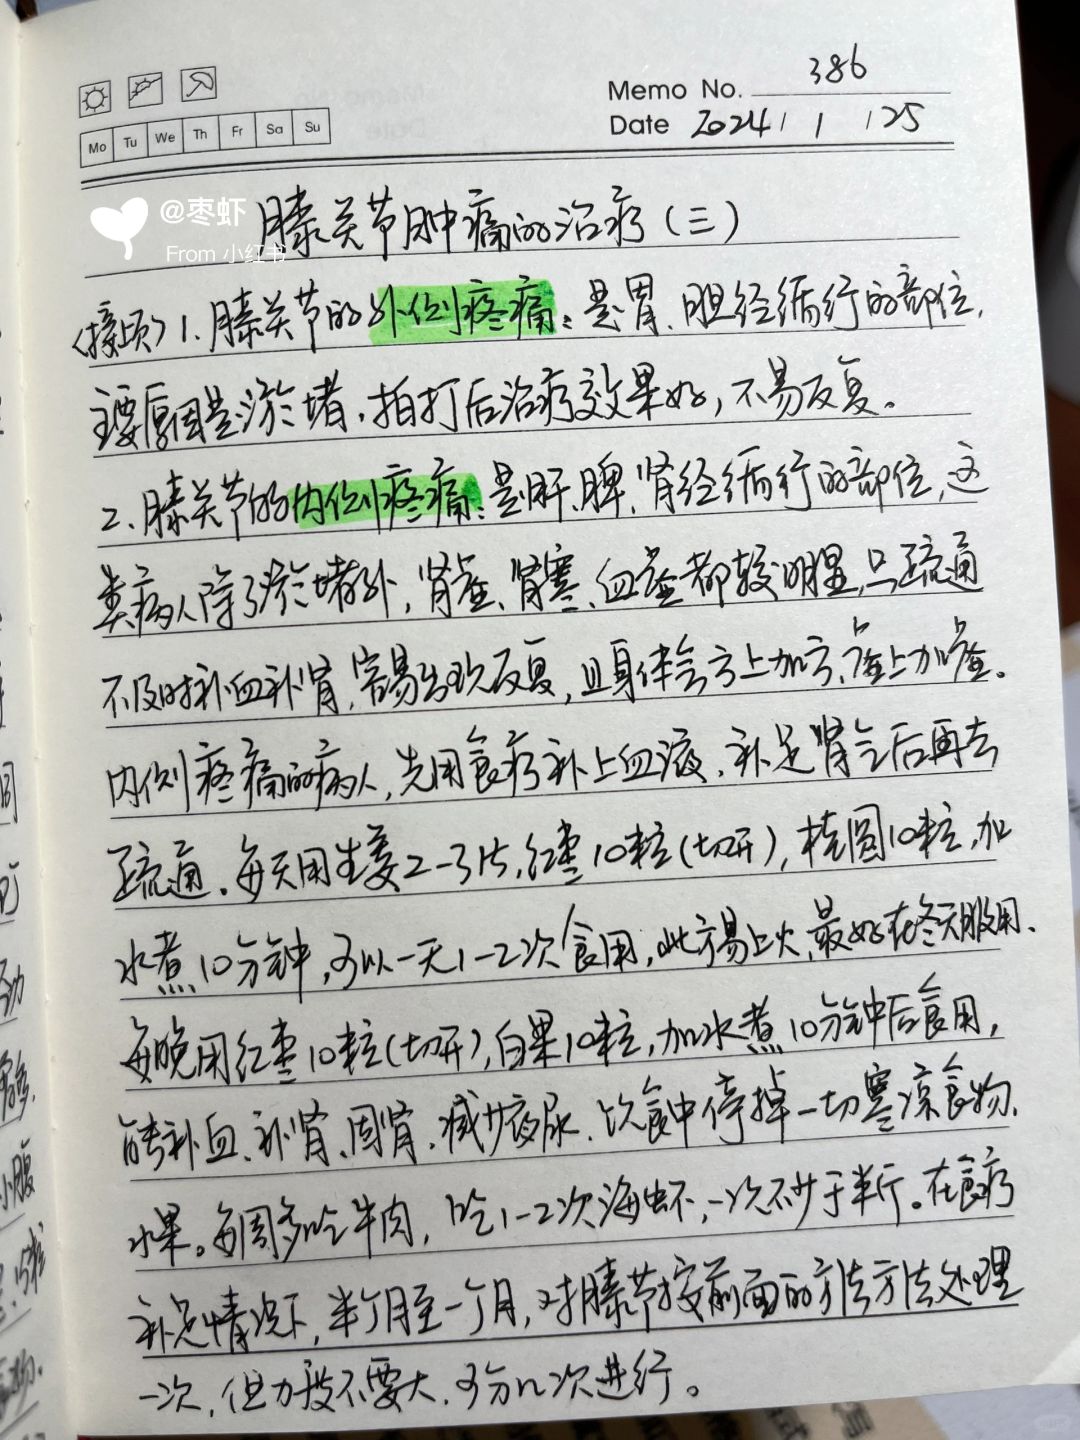 Memo No. 386
Mo Tu We Th Fr Sa Su
Date 2024 / 1 / 25
@枣虾
From 小红书
膝关节肿痛的治疗(三)
<接顷>1.膝关节的外侧疼痛:是胃、胆经循行的部位,
主要原因是淤堵,拍打后治疗效果好,不易反复。
2.膝关节的内侧疼痛:是肝、脾、肾经循行的部位,这
类病人除了淤堵外,肾虚、肾寒、血虚都较明显,只疏通
不及时补血补肾,容易出现反复,且身体会亏上加亏、虚上加虚。
内侧疼痛的病人,先用食疗补上血液,补足肾气后再去
疏通。每天用生姜2-3片,红枣10粒(切开),桂圆10粒,加
水煮10分钟,可以一天1-2次食用,此方易上火,最好在冬天服用.
每晚用红枣10粒(切开),白果10粒,加水煮10分钟后食用,
能补血、补肾、固肾、减少夜尿.饮食中停掉一切寒凉食物、
水果。每周多吃牛肉,吃1-2次海虾,一次不少于半斤。在食疗
补足情况下,半个月至一个月,对膝节按前面的方法方法处理
一次,但力度不要大,可分几次进行。